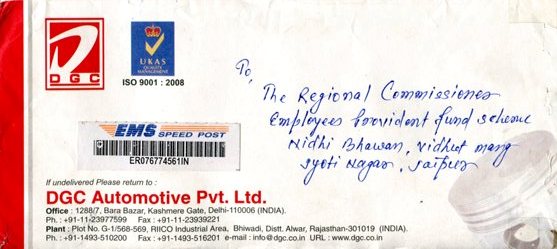 DGC
UKAS
QUALITY
MANAGEMENT
ISO 9001 : 2008
EMS SPEED POST
ER076774561IN
To,
The Regional Commissioner
Employees Provident fund scheme
Nidhi Bhawan, Vidhut marg
Jyoti Nagar, Jaipur
If undelivered Please return to :
DGC Automotive Pvt. Ltd.
Office : 1288/7, Bara Bazar, Kashmere Gate, Delhi-110006 (INDIA).
Ph. : +91-11-23977599 Fax : +91-11-23939221
Plant : Plot No. G-1/568-569, RIICO Industrial Area, Bhiwadi, Distt. Alwar, Rajasthan-301019 (INDIA).
Ph. : +91-1493-510200 Fax : +91-1493-516201 e-mail : info@dgc.co.in URL : www.dgc.co.in